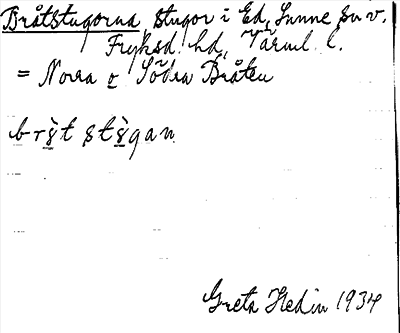 Bråtstugorna stugor i Ed, Sunne sn v.
Fryksd. hd, Värml. l.
= Norra o Södra Bråten
Greta Hedin 1934